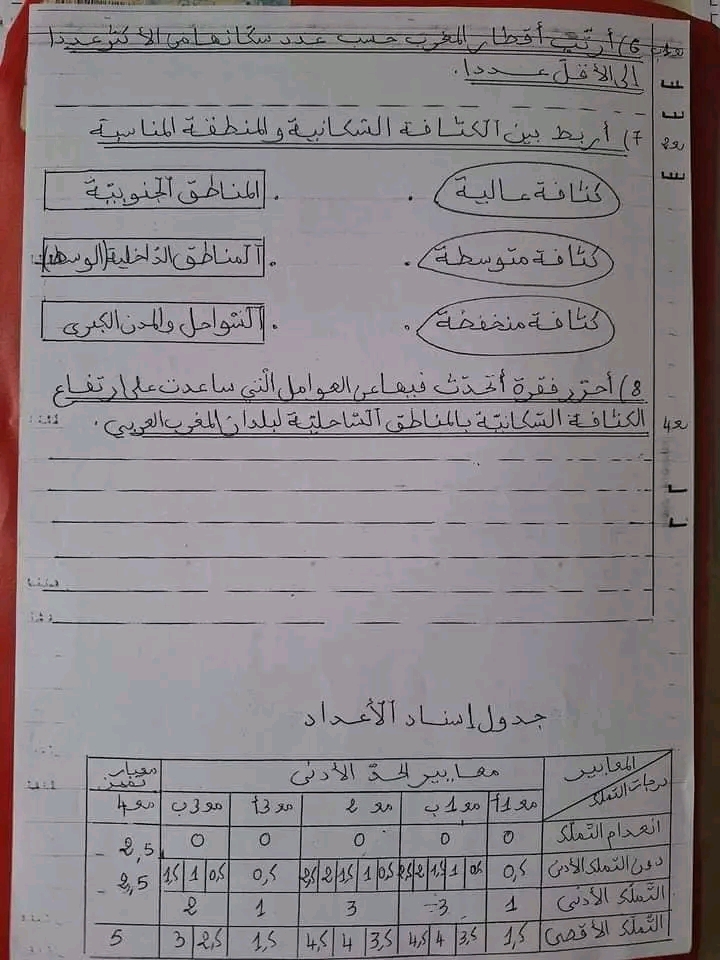 6) أرتّب أقطار المغرب حسب عدد سكانها من الأكثر عددا
إلى الأقل عددا.
7) أربط بين الكثافة السّكانية والمنطقة المناسبة
مع2
كثافة عالية . . المناطق الجنوبيّة
كثافة متوسطة . . المناطق الدّاخلية (الوسط)
كثافة منخفضة . . السّواحل والمدن الكبرى
8) أحرّر فقرة أتحدّث فيها عن العوامل الّتي ساعدت على ارتفاع
مع4 الكثافة السّكانيّة بالمناطق السّاحليّة لبلدان المغرب العربي.
جدول إسناد الأعداد
المعايير معايير الحدّ الأدنى معيار تميّز
درجات التملك مع1أ مع1ب مع2 مع3أ مع3ب مع4
انعدام التملّك 0 0 0 0 0
دون التملك الأدنى 0,5 0,5 1 1,5 2 2,5 0,5 1 1,5 2 2,5 0,5 0,5 1 1,5 2,5 - 2,5
التّملّك الأدنى 1 3 3 1 2
التّملّك الأقصى 1,5 3,5 4 4,5 3,5 4 4,5 1,5 2,5 3 5